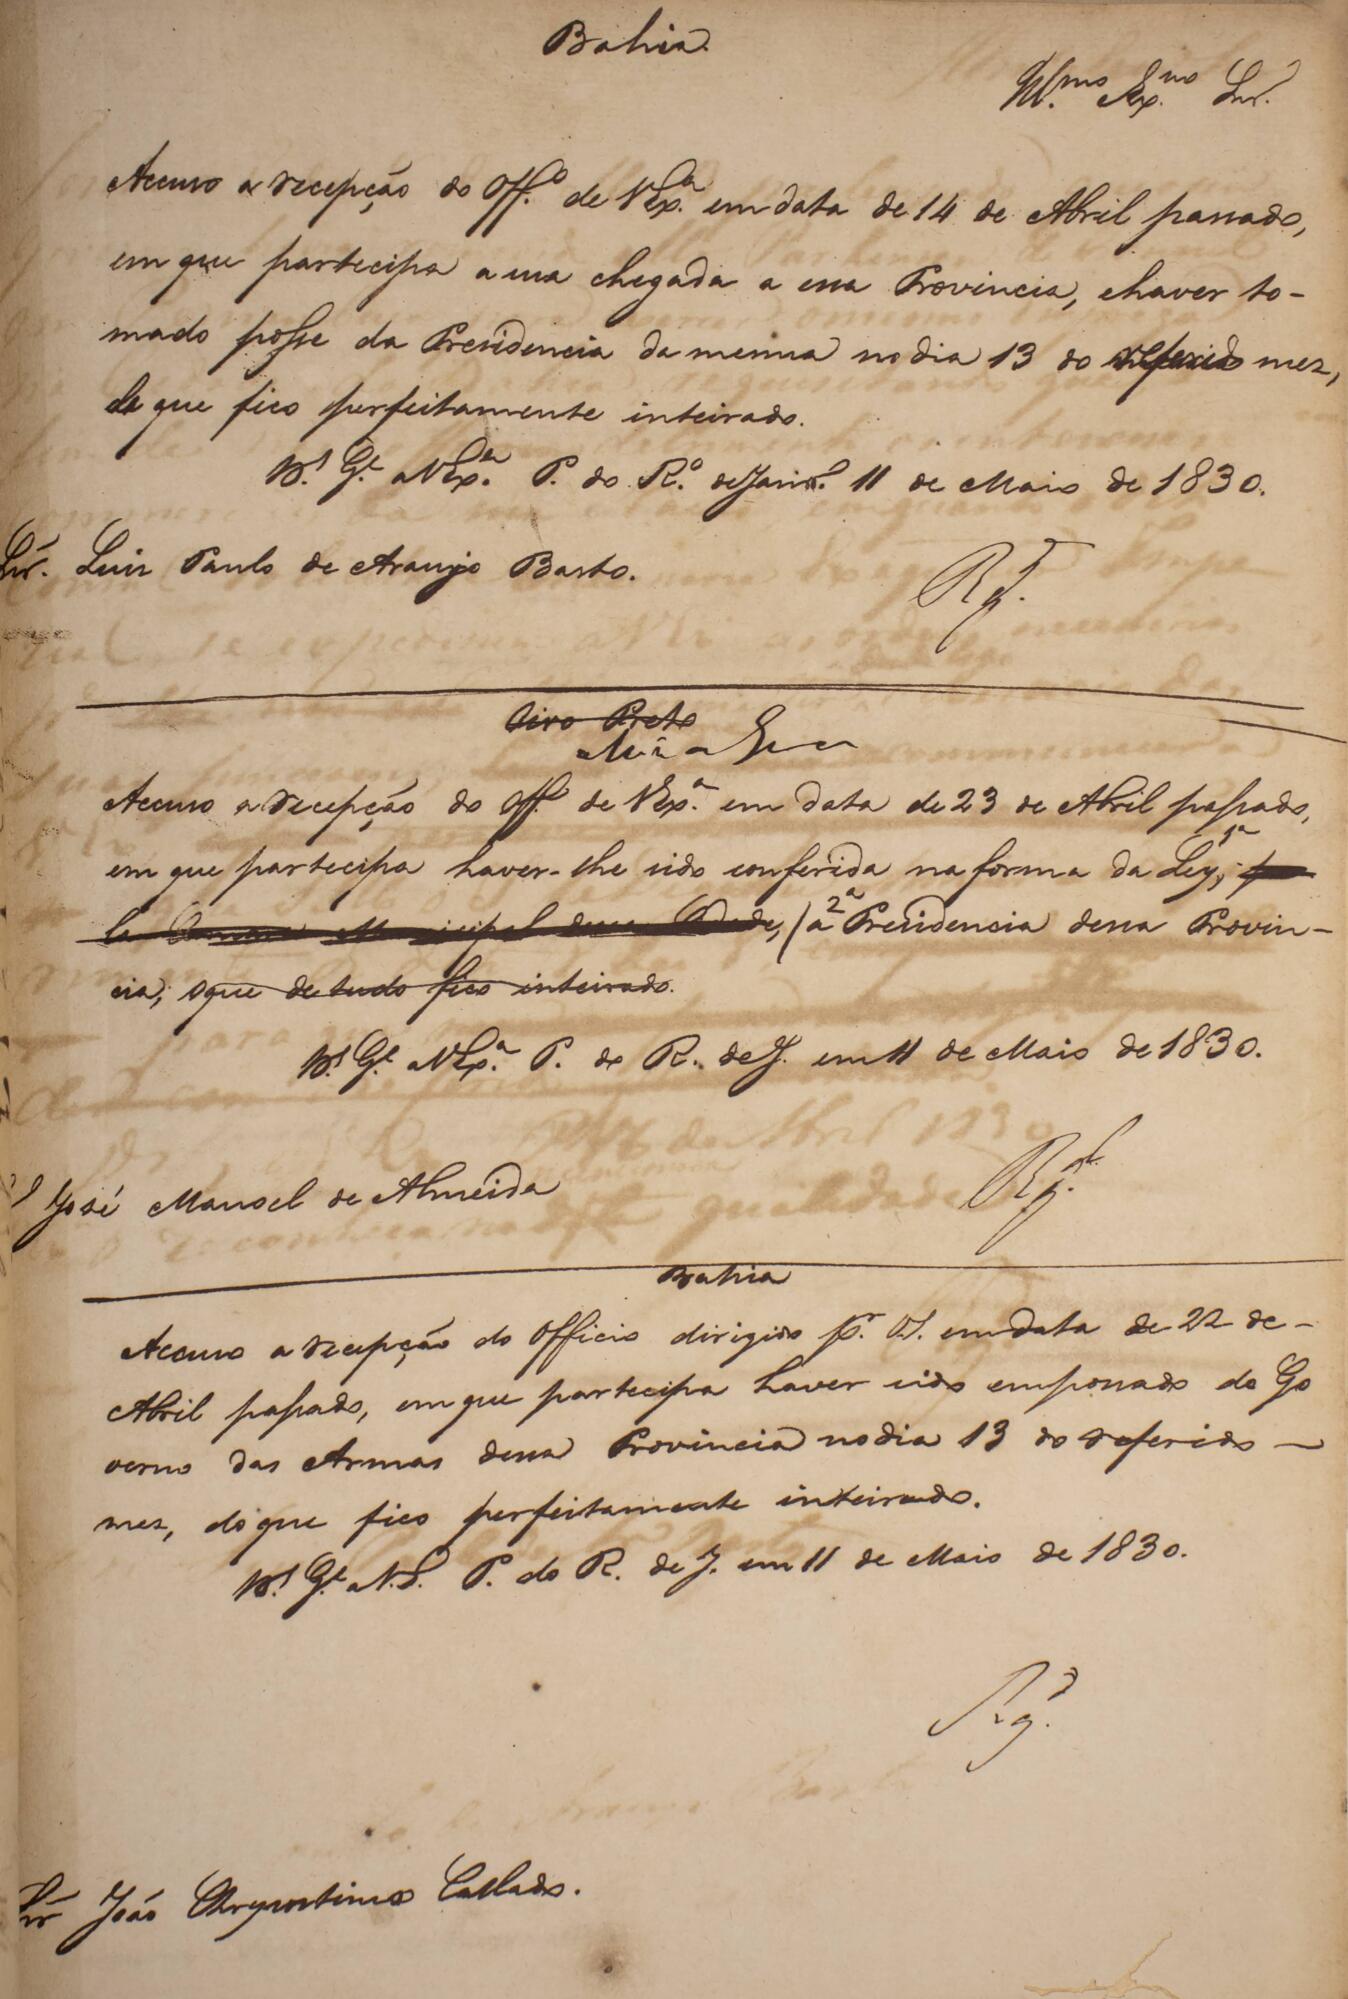 Bahia.
Ill.mo Ex.mo Snr.
Accuso a recepção do Off.o de V Ex.a em data de 14 de Abril passado,
em que partecipa a sua chegada a essa Provincia, e haver to-
mado posse da Presidencia da mesma no dia 13 do referido mez,
de que fico perfeitamente inteirado.
D.s G.e a V Ex.a P. do R.o de Janr.o 11 de Maio de 1830.
Snr. Luis Paulo de Araujo Basto.
Oiro Preto
Minas Geraes
Accuso a recepção do Off. de V Ex.a em data de 23 de Abril passado,
em que partecipa haver-lhe sido conferida na forma da Ley, pe
la Camara Municipal dessa Cidade, a Presidencia dessa Provin-
cia; o que de tudo fico inteirado.
D.s G.e a V Ex.a P. do R. de J. em 11 de Maio de 1830.
José Manoel de Almeida
Bahia
Accuso a recepção do Officio dirigido p.r V.S. em data de 22 de
Abril passado, em que partecipa haver sido empossado do Go
verno das Armas dessa Provincia no dia 13 do referido
mez, do que fico perfeitamente inteirado.
D.s G.e a V.S. P. do R. de J. em 11 de Maio de 1830.
Snr João Chrysostimo Callado.